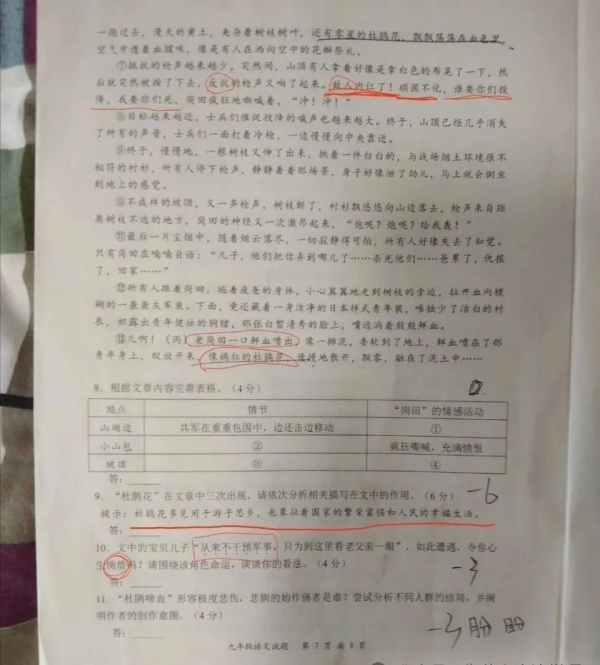 一炮过去，漫天的黄土，夹杂着树枝树叶，还有零星的杜鹃花，飘飘荡荡在血色里，
空气中透着血腥味，像是有人在洒向空中的花瓣祭礼。
⑦抵抗的枪声越来越少，突然间，山顶有人拿着好像是拿白色的布晃了一下，然
后就突然被按了下去，反抗的枪声又响了起来。敌人内讧了！顽固不化，谁要你们投
降，我要你们死，岗田疯狂地嘶喊着，“冲！冲！”
⑧目标越来越近，士兵们催促投降的喊声也越来越大。终于，山顶已经几乎消失
了所有的声音，士兵们一面打着冷枪，一边慢慢向中央靠近。
⑨终于，慢慢地，一根树枝又伸了出来，挑着一件白白的，与战场烟土环境很不
相符的衬衫，所有人停下枪声，静静看着那场景，身子好像泄了劲儿，马上就会倒坐
到地上的感觉。
⑩不成样的坡顶，又一声枪声，树枝断了，衬衫飘悠悠向山边落去，枪声来自距
离树枝不远的地方，岗田的神经又一次激昂起来，“炮呢？炮呢？给我轰！”
⑪最后一片尘烟中，随着烟云落尽，一切寂静得可怕，所有人好像失去了知觉。
只有岗田在喃喃自语：“儿子，他们把你弄到哪儿了……杀光他们……爸累了，仇报
了，回家……”
⑫所有人跟着岗田，拖着疲惫的身体，小心翼翼地走到树枝的旁边，拉开血肉模
糊的一袭袭灰军装。下面，竟还藏着一身洁净的日本样式青年装，唯独少了洁白的衬
衫，袒露出青年健壮的胸膛，那张白皙清秀的脸上，嘴边淌着殷殷鲜血。
⑬儿啊！（丙）老岗田一口鲜血喷出，像一摊泥，委软到了地上，鲜血喷在了那
青年身上，绽放开来，像嫣红的杜鹃花，慢慢地散开，飘零，融在了泥土中……
8、根据文章内容完善表格。（4分）
地点 情节 “岗田”的情感活动
山坳边 共军在重重包围中，边还击边移动 ①
小山包 ② 疯狂嘶喊，充满愤恨
坡顶 ③ ④
答：
9、“杜鹃花”在文章中三次出现，请依次分析相关描写在文中的作用。（6分） -6
提示：杜鹃花多见用于游子思乡，也象征着国家的繁荣富强和人民的幸福生活。
答：
10、文中的宝贝儿子“从来不干预军事，只为到这里看老父亲一眼”，如此遭遇，令你心
生惋惜吗？请围绕该角色命运，谈谈你的看法。（4分） -3
答：
11、“杜鹃啼血”形容极度悲伤，悲剧的始作俑者是谁？尝试分析不同人群的结局，并阐
明作者的创作意图。（4分） -3
答：
九年级语文试题 第 7 页 共 8 页